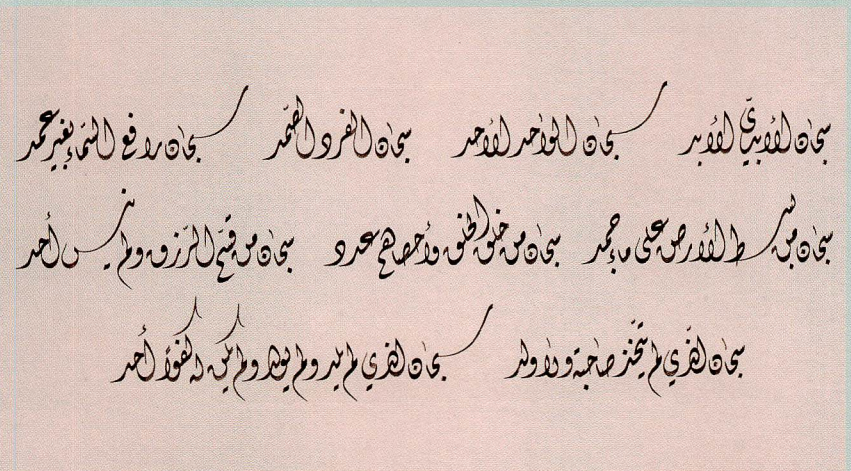 سبحان الأبديّ الأبد سبحان الواحد الأحد سبحان الفرد الصّمد سبحان رافع السّماء بغير عمد
سبحان من بسط الأرض على ماء جمد سبحان من خلق الخلق وأحصاهم عدد سبحان من قسّم الرّزق ولم ينس أحد
سبحان الذّي لم يتّخذ صاحبة ولا ولد سبحان الذي لم يلد ولم يولد ولم يكن له كفوًا أحد